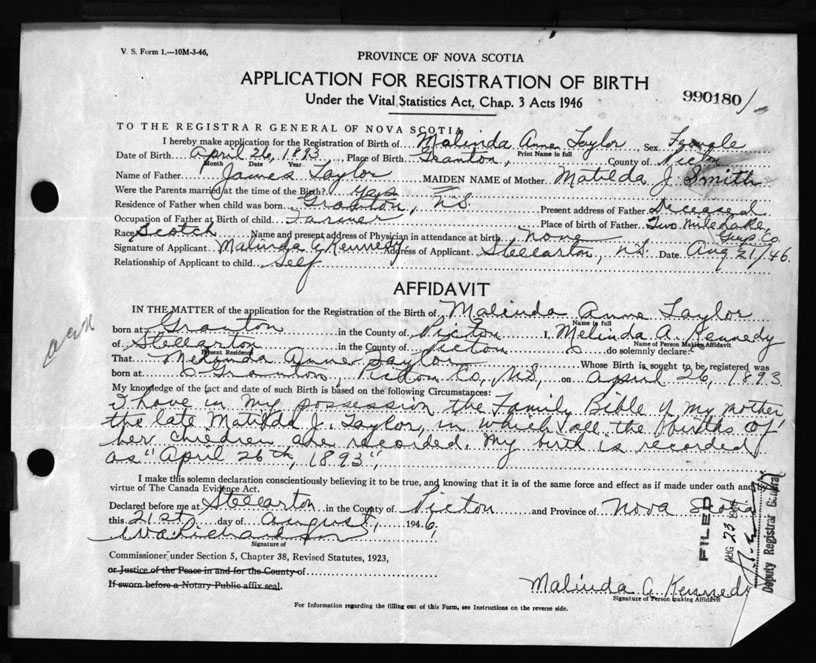 V. S. Form 1.—10M-3-46,
PROVINCE OF NOVA SCOTIA
APPLICATION FOR REGISTRATION OF BIRTH
Under the Vital Statistics Act, Chap. 3 Acts 1946
990180/
TO THE REGISTRAR GENERAL OF NOVA SCOTIA
I hereby make application for the Registration of Birth of Malinda Anne Taylor, Sex Female
Print Name in full
Date of Birth April 26, 1893, Place of Birth Granton, County of Pictou
Month Date Year
Name of Father James Taylor MAIDEN NAME of Mother Matilda J. Smith
Were the Parents married at the time of the Birth? Yes
Residence of Father when child was born Granton, N.S. Present address of Father Deceased
Occupation of Father at Birth of child Farmer Place of birth of Father Two Mile Lake, Guys. Co.
Race Scotch Name and present address of Physician in attendance at birth None
Signature of Applicant Malinda A Kennedy Address of Applicant Stellarton, N.S. Date Aug 21/46.
Relationship of Applicant to child Self
AFFIDAVIT
IN THE MATTER of the application for the Registration of the Birth of Malinda Anne Taylor
Name in full
born at Granton in the County of Pictou I, Melinda A. Kennedy
Name of Person Making Affidavit
of Stellarton in the County of Pictou do solemnly declare:
Present Residence
That Melinda Anne Taylor Whose Birth is sought to be registered was
born at Granton, Pictou Co., N.S, on April 26, 1893
My knowledge of the fact and date of such Birth is based on the following Circumstances:
I have in my possession the Family Bible of my mother
the late Matilda J. Taylor, in which all the births of
her children are recorded. My birth is recorded
as "April 26th, 1893",
I make this solemn declaration conscientiously believing it to be true, and knowing that it is of the same force and effect as if made under oath and by
virtue of The Canada Evidence Act.
Declared before me at Stellarton in the County of Pictou and Province of Nova Scotia
this 21st day of August, 1946,
Signature of
Commissioner under Section 5, Chapter 38, Revised Statutes, 1923,
or Justice of the Peace in and for the County of
If sworn before a Notary Public affix seal.
Malinda A. Kennedy
Signature of Person making Affidavit
For Information regarding the filling out of this Form, see Instructions on the reverse side.
FILED
AUG 23
Deputy Registrar General